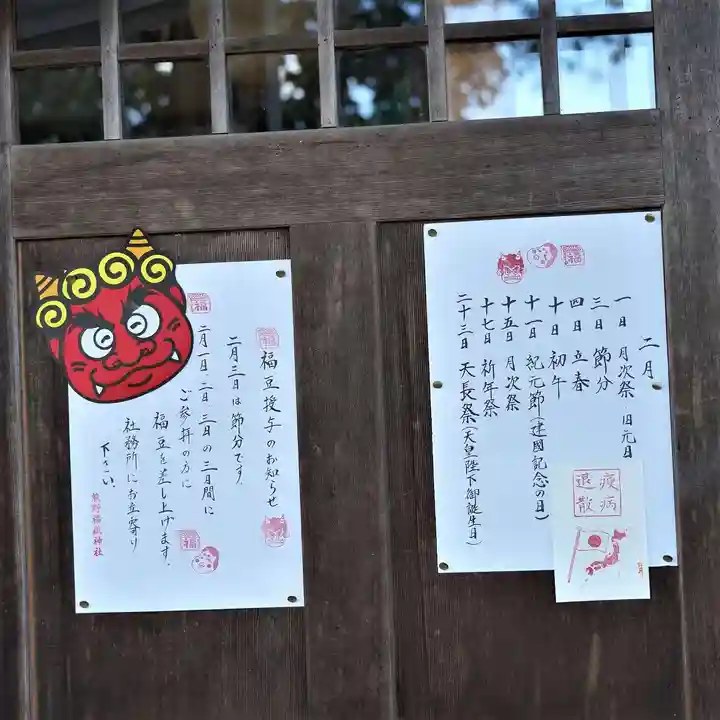 二月
一日 月次祭 旧元日
三日 節分
四日 立春
十日 初午
十一日 紀元節(建國記念の日)
十五日 月次祭
十七日 祈年祭
二十三日 天長祭(天皇陛下御誕生日)
疫病
退散
福
福豆授与のお知らせ
二月三日は節分です。
二月一日、二日、三日の三日間に
ご参拝の方に
福豆を差し上げます。
社務所にお立寄り
下さい。
熊野福藏神社
福
福
福